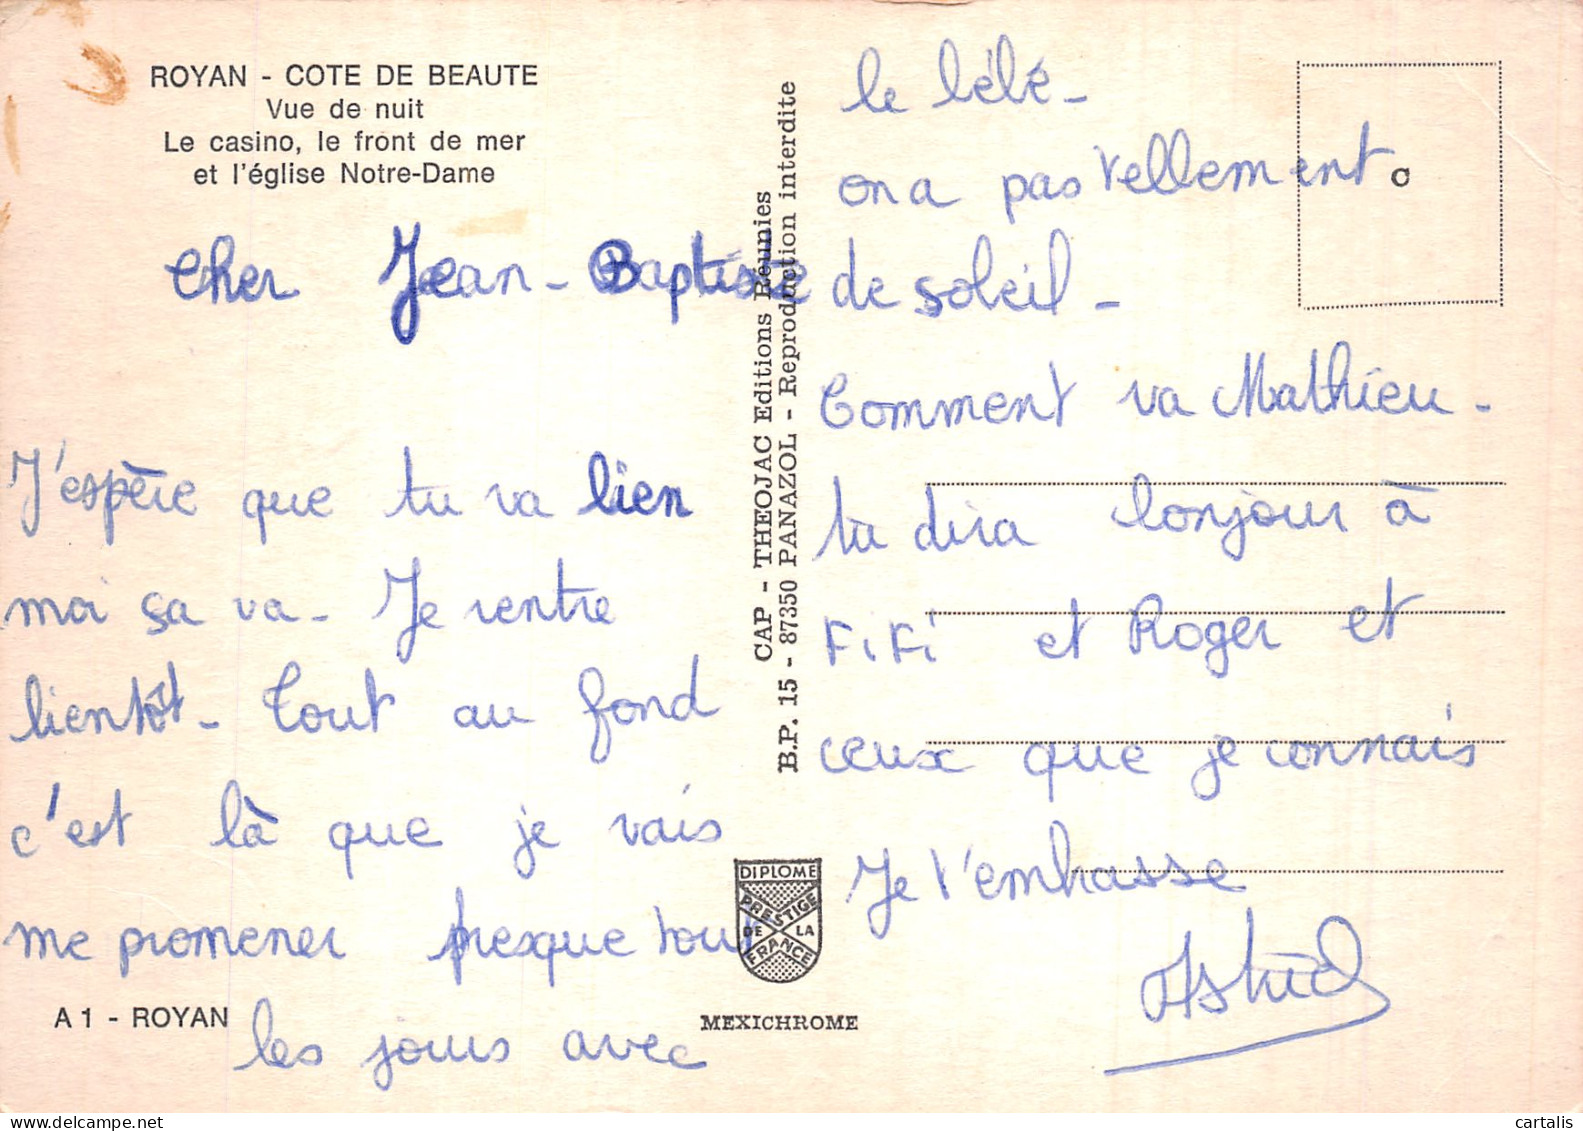 ROYAN - COTE DE BEAUTE
Vue de nuit
Le casino, le front de mer
et l'église Notre-Dame
Cher Jean-Baptiste
J'espère que tu va bien
moi sa va - Je rentre
bientôt - Tout au fond
c'est là que je vais
me promener presque tout
les jours avec
A 1 - ROYAN
CAP - THEOJAC Editions Réunies
B.P. 15 - 87350 PANAZOL - Reproduction interdite
DIPLOME
PRESTIGE
DE LA
FRANCE
MEXICHROME
le bébé -
on a pas tellement
C
de soleil -
Comment va Mathieu -
tu dira bonjour à
FiFi et Roger et
ceux que je connais
Je t'embrasse
Astrid
cartalis